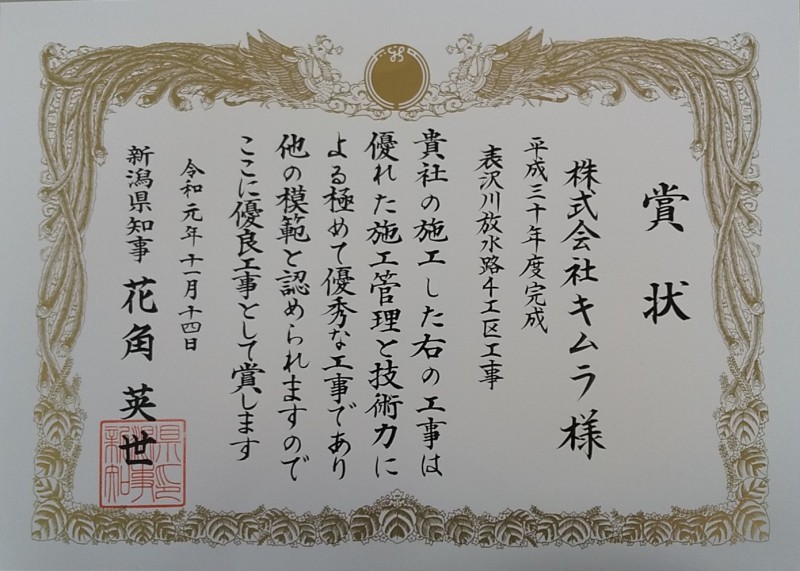 賞状
株式会社キムラ様
平成三十年度完成
表沢川放水路4工区工事
貴社の施工した右の工事は
優れた施工管理と技術力に
よる極めて優秀な工事であり
他の模範と認められますので
ここに優良工事として賞します
令和元年十一月十四日
新潟県知事 花角英世
新潟県知事之印